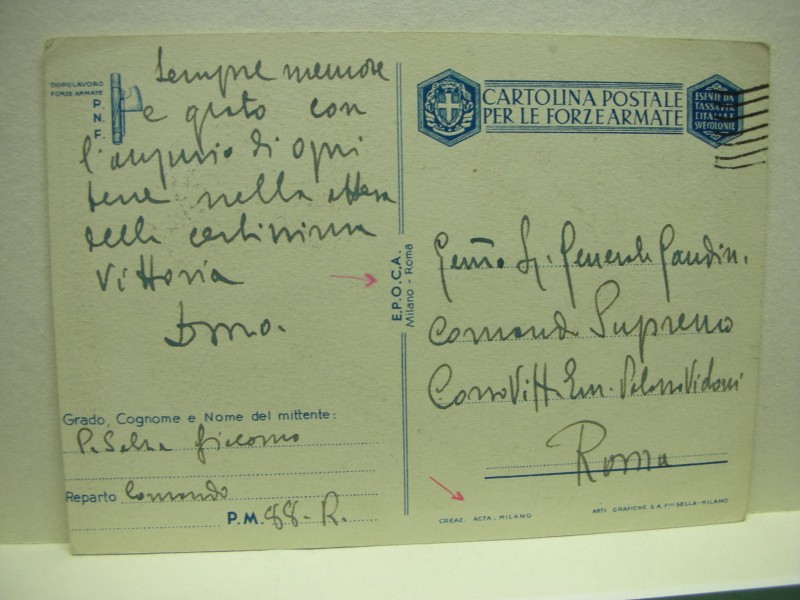 DOPOLAVORO
FORZE ARMATE
P.
N.
F.
Sempre memore
e grato con
l'augurio di ogni
bene nella attesa
della certissima
Vittoria
Grado, Cognome e Nome del mittente:
P. Salza Giacomo
Reparto Comando
P.M. 88-R.
E.P.O.C.A.
Milano - Roma
CARTOLINA POSTALE
PER LE FORZE ARMATE
ESENTE DA
TASSA PER
L'ITALIA E
SVE COLONIE
Sig. Generale Gandin.
Comando Supremo
Corso Vitt. Em. Palazzo Vidoni
Roma
CREAZ. ACTA - MILANO
ARTI GRAFICHE S.A. FLLI SELLA - MILANO